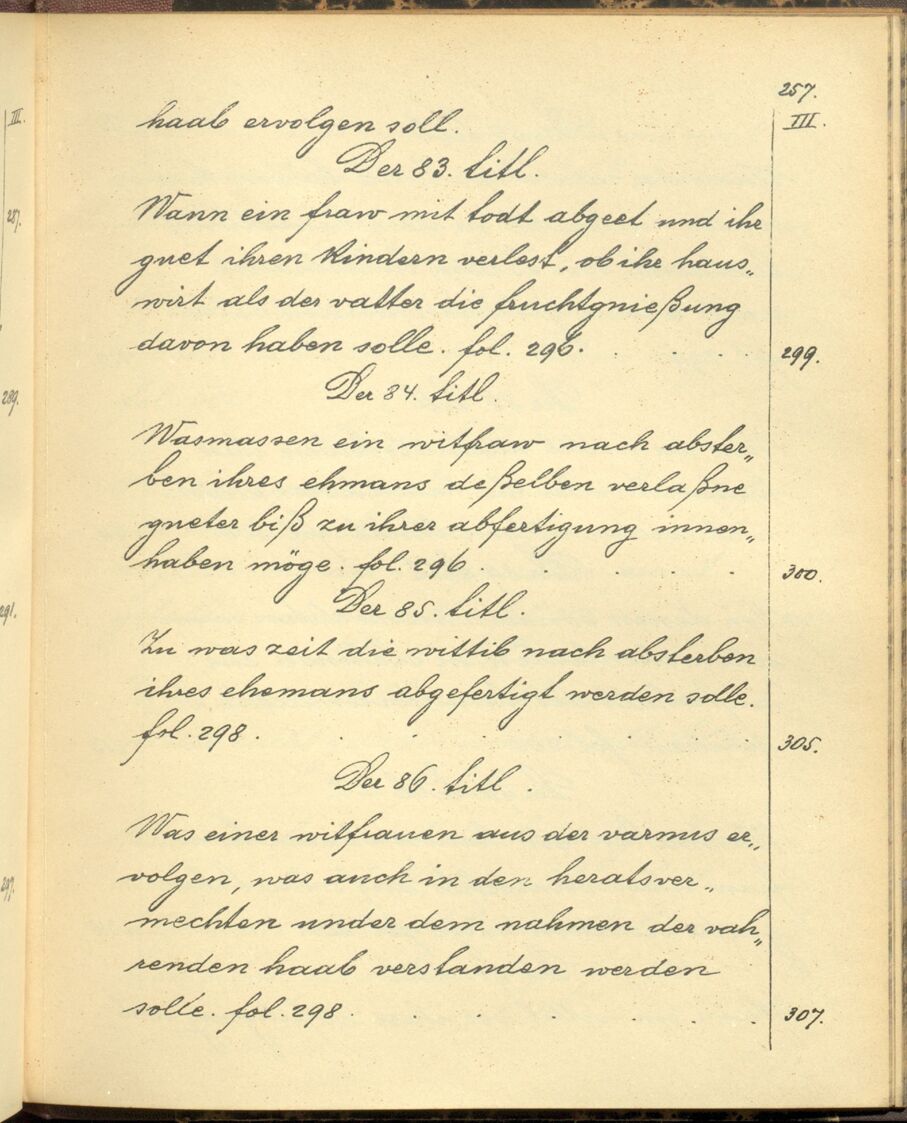 257.
III.
III.
haab ervolgen soll.
Der 83. titl.
Wann ein fraw mit todt abgeet und ihr
287.
guet ihren Kindern verlest, ob ihr haus„
wirt als der vatter die fruchtgnießung
davon haben solle. fol. 296. . . . 299.
Der 84. titl.
289.
Wasmassen ein witfraw nach abster„
ben ihres ehmans deßelben verlaßne
gueter biß zu ihrer abfertigung innen„
haben möge. fol. 296 . . . 300.
Der 85. titl.
291.
Zu was zeit die wittib nach absterben
ihres ehemans abgefertigt werden solle.
fol. 298 . . . . . . . 305.
Der 86. titl .
Was einer witfrauen aus der varnus er„
volgen, was auch in den heratsver„
297.
mechten under dem nahmen der vah„
renden haab verstanden werden
solle. fol. 298 . . . . . . 307.